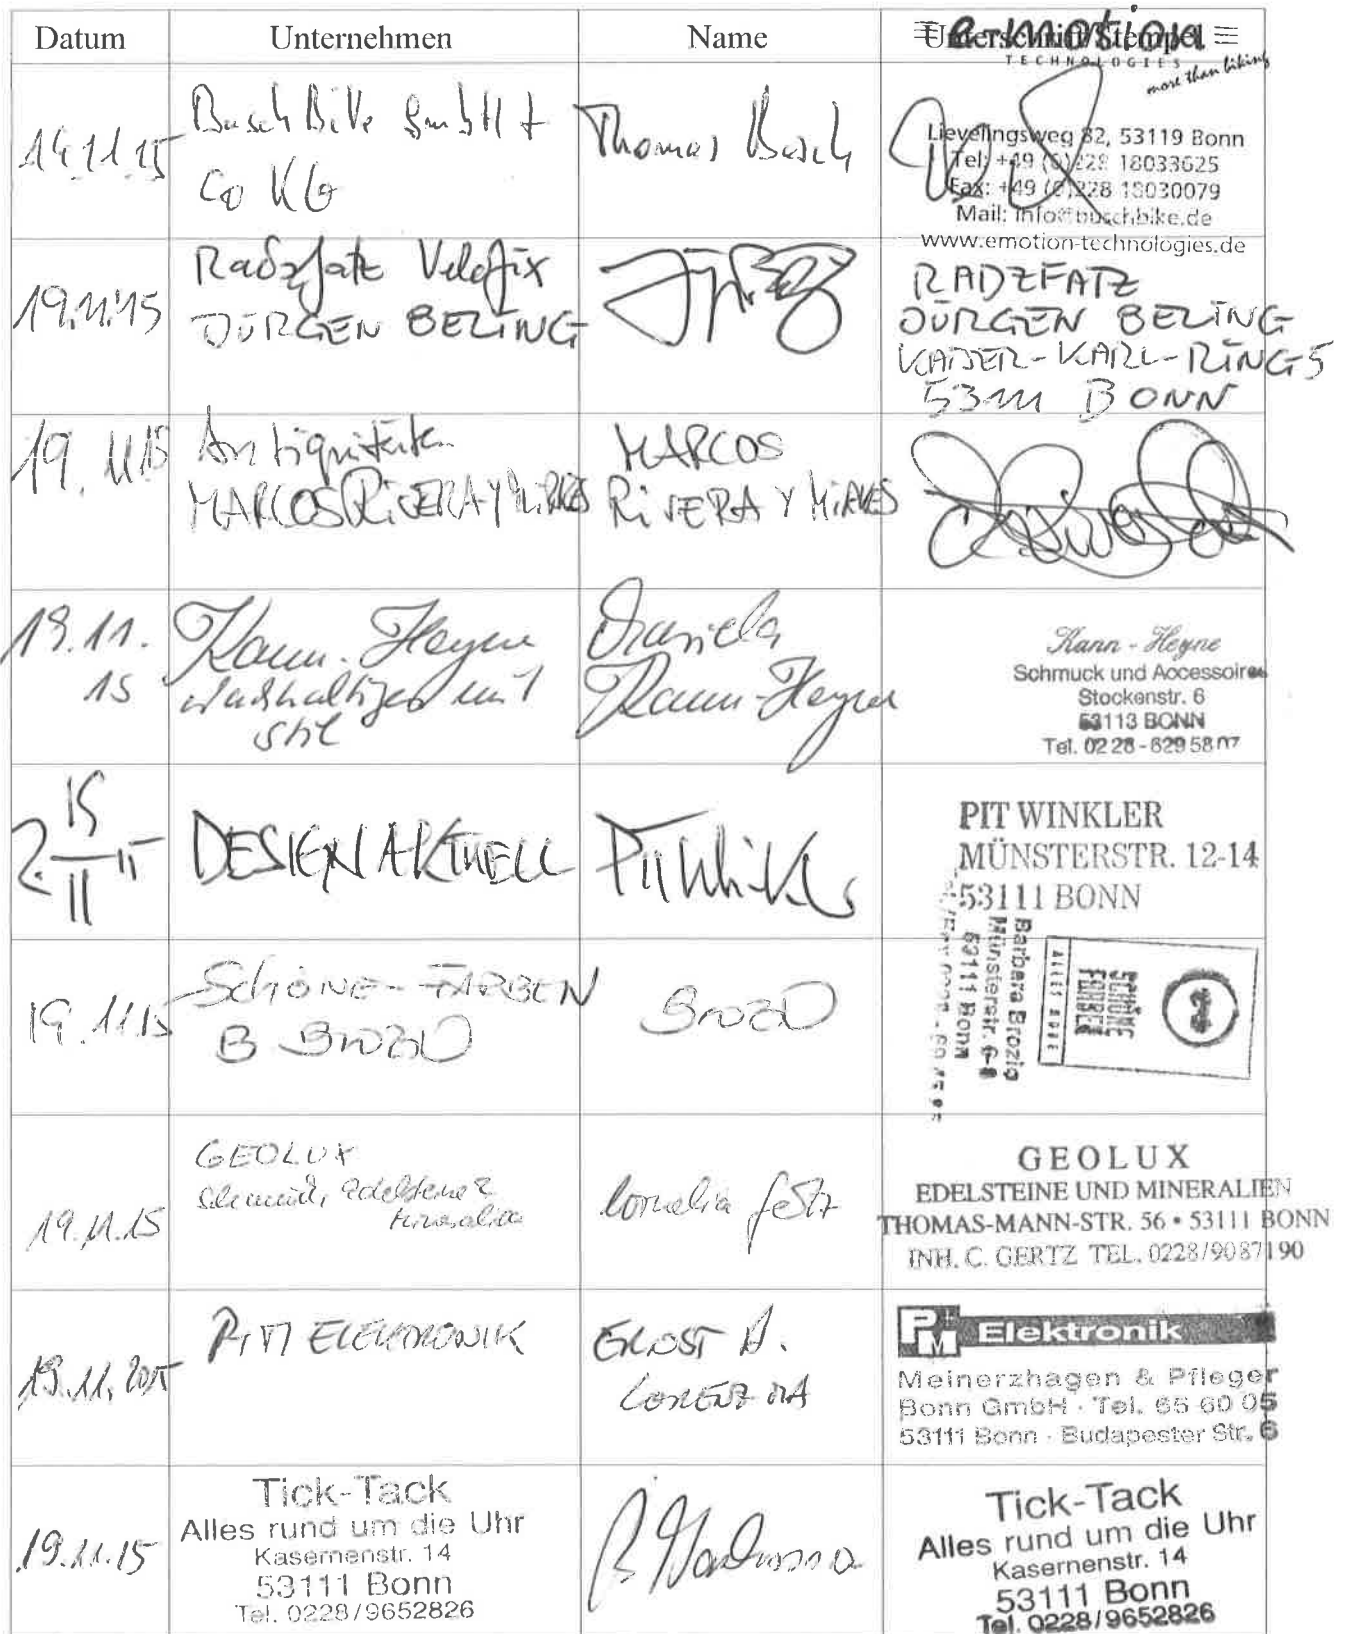 Datum Unternehmen Name Unterschrift/Stempel
e-motion
TECHNOLOGIES
more than biking
14.11.15
Busch Bike GmbH +
Co KG
Thomas Busch
Lievelingsweg 82, 53119 Bonn
Tel: +49 (0)228 18033625
Fax: +49 (0)228 18030079
Mail: info@buschbike.de
www.emotion-technologies.de
19.11.15
Radzfatz Velofix
JÜRGEN BEZING
RADZFATZ
JÜRGEN BEZING
KAISER-KARL-RING 5
53111 BONN
19.11.15
Antiquitäten
MARCOS RIVERA Y MIRVES
MARCOS
RIVERA Y MIRVES
19.11.
15
Kann-Heyne
nachhaltiges mit
Stil
Daniela
Kann-Heyne
Kann-Heyne
Schmuck und Accessoires
Stockenstr. 6
53113 BONN
Tel. 02 28 - 629 58 07
19
11 15
DESIGN AKTUELL
Pit Winkler
PIT WINKLER
MÜNSTERSTR. 12-14
53111 BONN
19.11.15
SCHÖNE-FARBEN
B Brozio
Brozio
Barbara Brozig
Münsterstr. 6-8
53111 Bonn
SCHÖNE
FARBEN
ALLES MODE
19.11.15
GEOLUX
Schmuck, Edelsteine &
Mineralien
Cornelia Gertz
GEOLUX
EDELSTEINE UND MINERALIEN
THOMAS-MANN-STR. 56 • 53111 BONN
INH. C. GERTZ TEL. 0228/9087190
19.11.2015
P+M ELEKTRONIK
ERNST A.
P+M Elektronik
Meinerzhagen & Pfleger
Bonn GmbH · Tel. 65 60 05
53111 Bonn · Budapester Str. 6
19.11.15
Tick-Tack
Alles rund um die Uhr
Kasernenstr. 14
53111 Bonn
Tel. 0228/9652826
Tick-Tack
Alles rund um die Uhr
Kasernenstr. 14
53111 Bonn
Tel. 0228/9652826